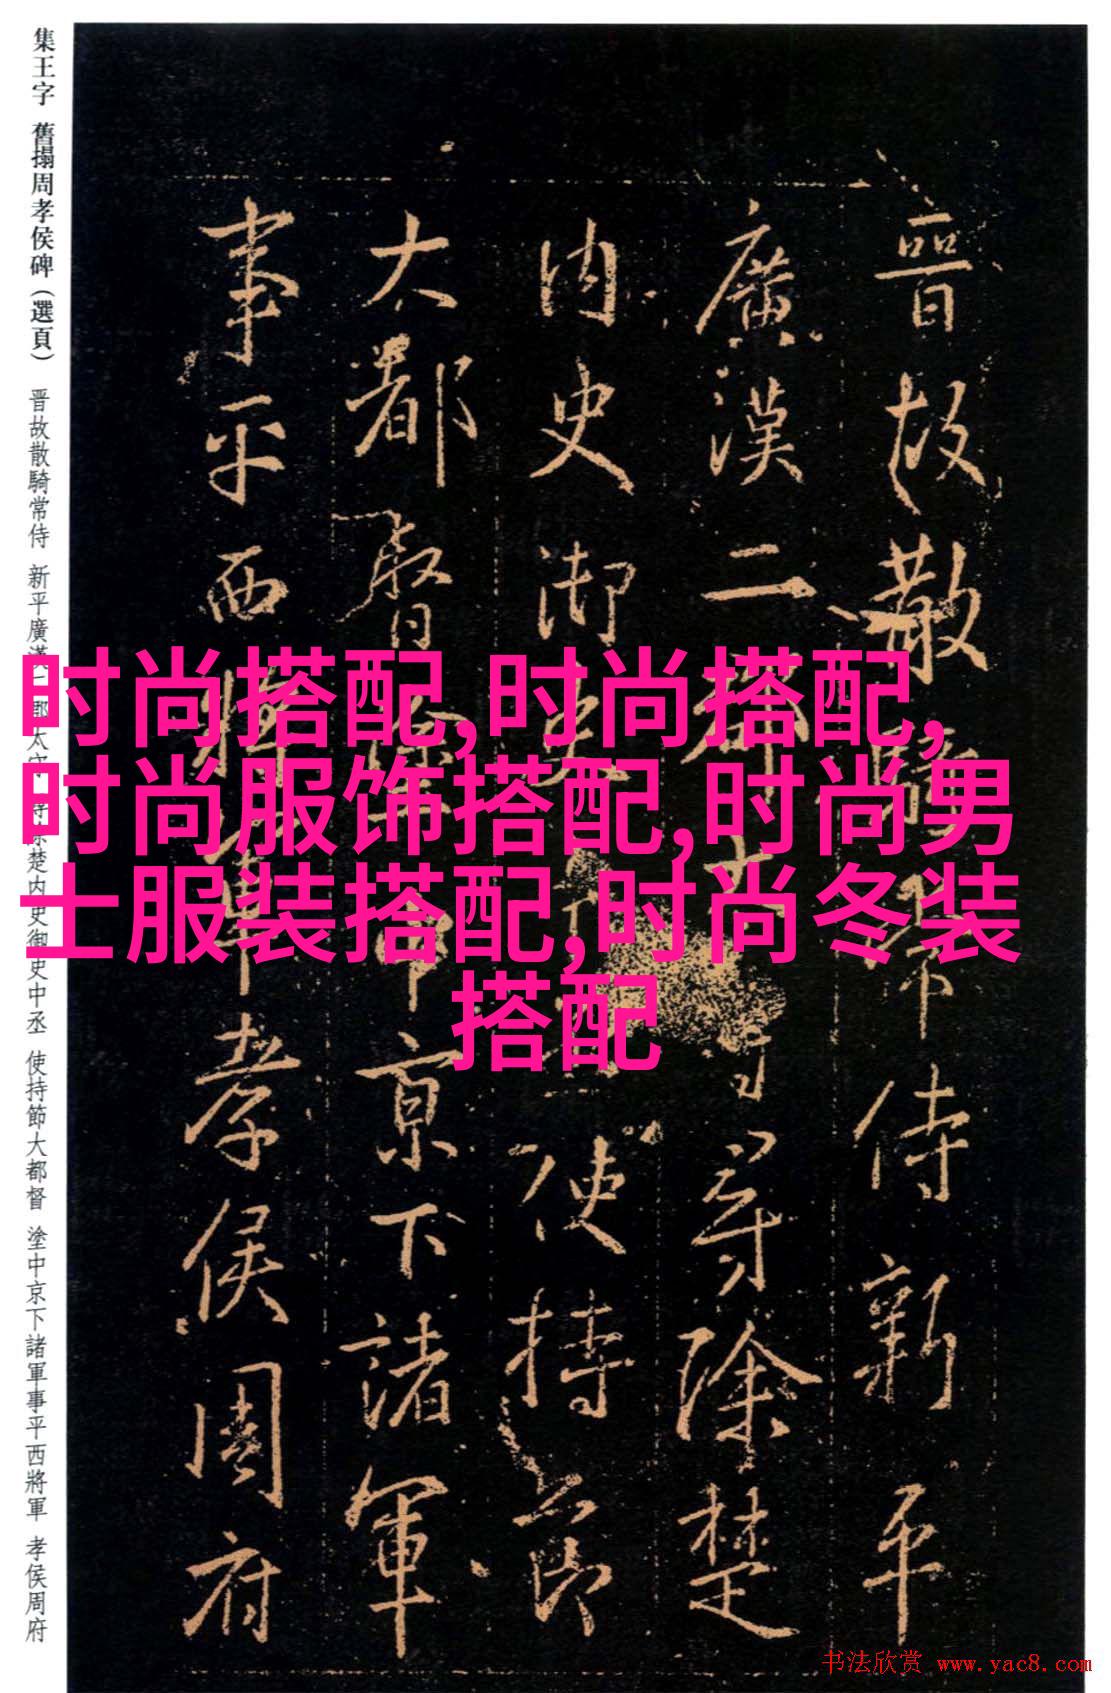 集王字 舊搨周孝侯碑（選頁） 晋故散騎常侍 新平廣漢二郡太守 尋除楚内史御史中丞 使持節大都督 塗中京下諸軍事平西將軍 孝侯周府
晉故散騎常侍新平
廣漢二郡太守尋除楚
内史御史中丞使持節
大都督塗中京下諸軍
事平西將軍孝侯周府
时尚搭配,时尚搭配,
时尚服饰搭配,时尚男
士服装搭配,时尚冬装
搭配
书法欣赏 www.yac8.com